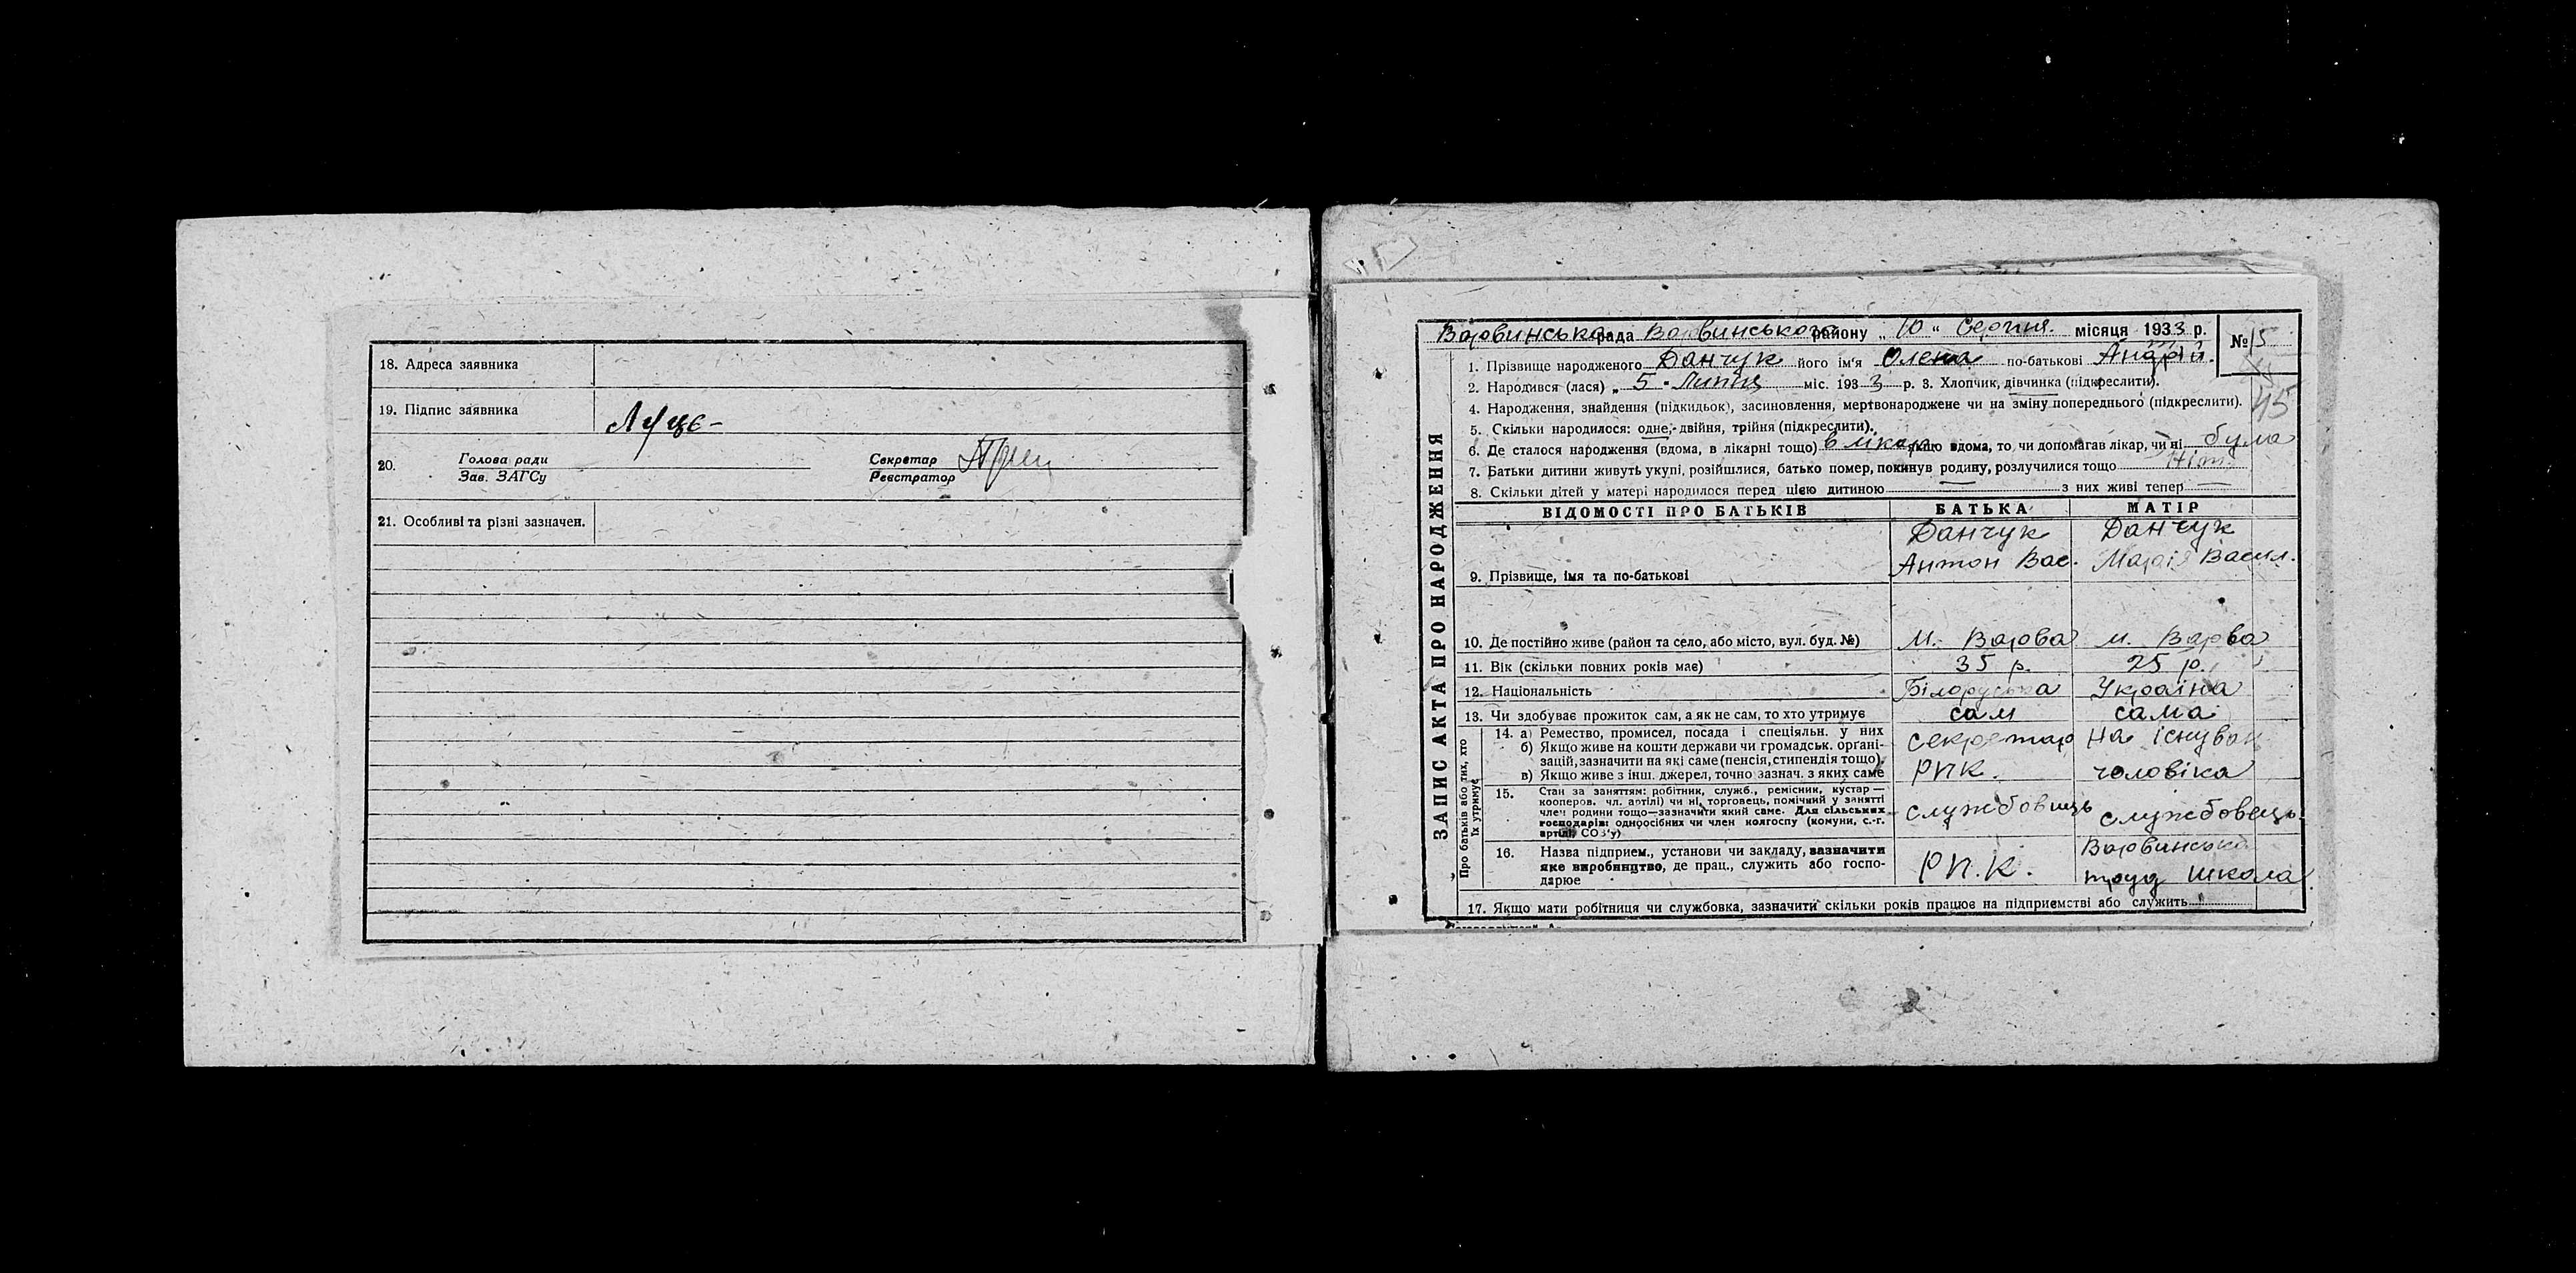 18. Адреса заявника
19. Підпис заявника
20. Голова ради
Зав. ЗАГСу
Секретар
Реєстратор
21. Особливі та різні зазначен.
ЗАПИС АКТА ПРО НАРОДЖЕННЯ
Варвинська рада Варвинського району „ 10 “ Серпня місяця 1933 р. № 15
45
1. Прізвище народженого Данчук його ім'я Олена по-батькові
2. Народився (лася) „ 5 “ Липня міс. 193 3 р. 3. Хлопчик, дівчинка (підкреслити).
4. Народження, знайдення (підкидьок), засиновлення, мертвонароджене чи на зміну попереднього (підкреслити).
5. Скільки народилося: одне, двійня, трійня (підкреслити).
6. Де сталося народження (вдома, в лікарні тощо) в лікар якщо вдома, то, чи допомагав лікар, чи ні була
7. Батьки дитини живуть укупі, розійшлися, батько помер, покинув родину, розлучилися тощо Ніт
8. Скільки дітей у матері народилося перед цією дитиною — з них живі тепер —
ВІДОМОСТІ ПРО БАТЬКІВ БАТЬКА МАТІР
9. Прізвище, імя та по-батькові Данчук Антон Вас. Данчук Марія Васил.
10. Де постійно живе (район та село, або місто, вул. буд. №) м. Варва м. Варва
11. Вік (скільки повних років має) 35 р. 25 р.
12. Національність Білоруська Україна
13. Чи здобуває прожиток сам, а як не сам, то хто утримує сам сама
Про батьків або тих, хто їх утримує
14. а) Ремество, промисел, посада і спеціяльн. у них
б) Якщо живе на кошти держави чи громадськ. органі-
зацій, зазначити на які саме (пенсія, стипендія тощо).
в) Якщо живе з інш. джерел, точно зазнач. з яких саме
секретар РПК. на існуван чоловіка
15. Стан за заняттям: робітник, служб., ремісник, кустар —
кооперов. чл. артілі) чи ні, торговець, помічний у занятті
член родини тощо—зазначити який саме. Для сільських
господарів: одноосібних чи член колгоспу (комуни, с.-г.
артілі, СОЗ'у)
службовець службовець
16. Назва підприєм., установи чи закладу, зазначити
яке виробництво, де прац., служить або госпо-
дарює
РПК. Варвинська труд школа
17. Якщо мати робітниця чи службовка, зазначити скільки років працює на підприємстві або служить